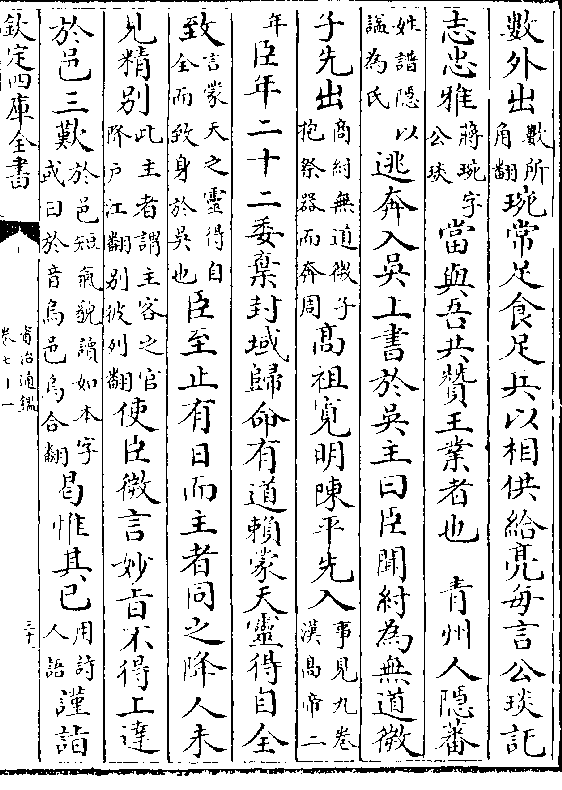 數外出數所角翻琬常足食足兵以相供給亮每言公琰託
志忠雅蔣琬字公琰當與吾共贊王業者也　青州人隱蕃
姓譜隱謚為氏以逃奔入吳上書於吳主曰臣聞紂為無道微
子先出商紂無道微子抱祭器而奔周高祖寛明陳平先入事見九卷漢高帝二
年臣年二十二委棄封域歸命有道賴蒙天靈得自全
致言蒙天之靈得自全而致身於吳也臣至止有日而主者同之降人未
見精别此主者謂主客之官降户江翻别彼列翻使臣微言妙旨不得上達
於邑三歎於邑短氣貌讀如本字或曰於音烏邑烏合翻曷惟其已用詩人語謹詣
欽定四庫全書
資治通鑑
卷七十一
三十